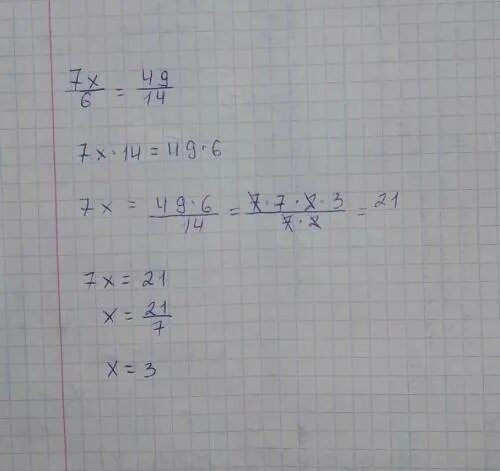 7x/6 = 49/14
7x·14 = 49·6
7x = 49·6/14 = 7·7·2·3/7·2 = 21
7x = 21
x = 21/7
x = 3